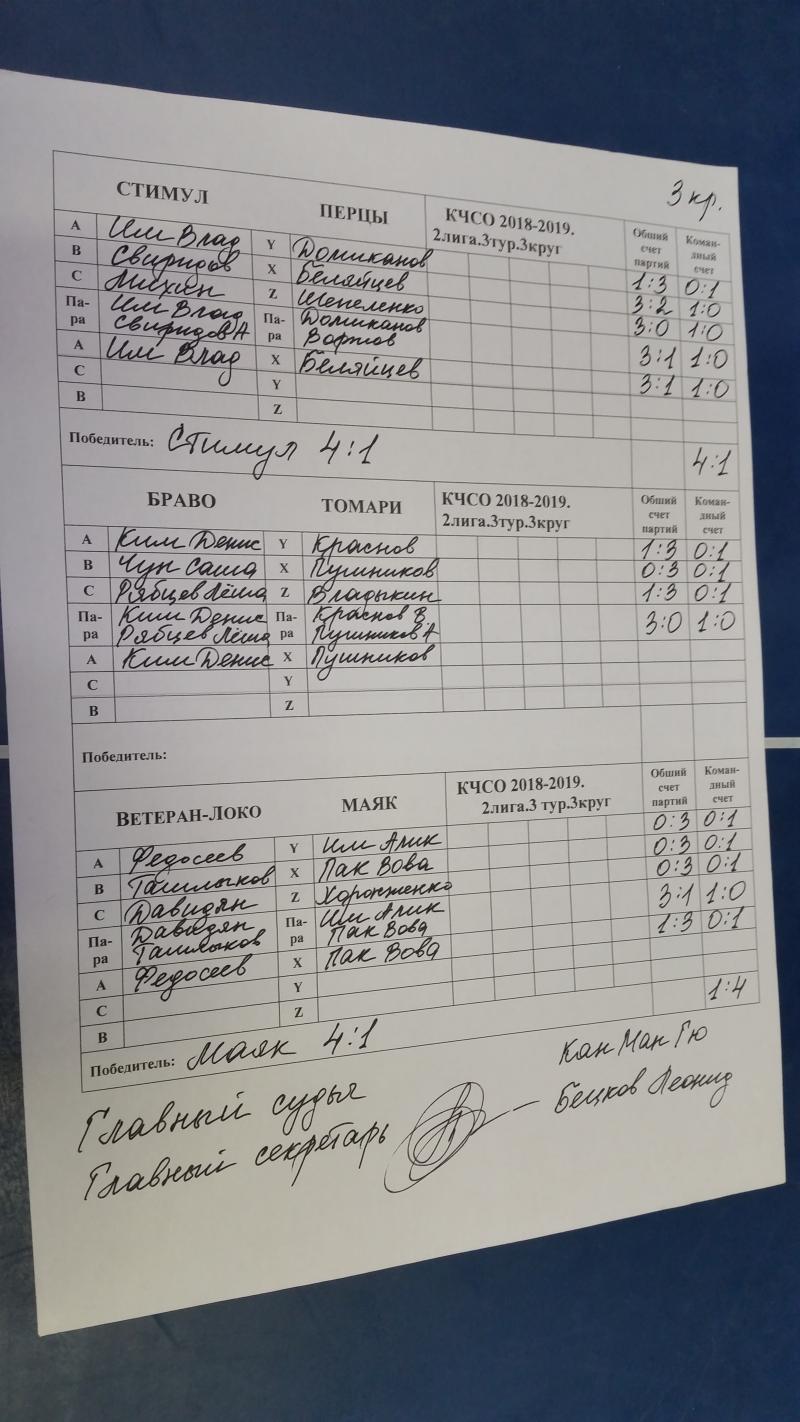 3 кр.
СТИМУЛ ПЕРЦЫ КЧСО 2018-2019. 2лига.3тур.3круг Общий счет партий Коман-дный счет
A Им Влад Y Домиканов 1:3 0:1
B Свиридов X Беляйцев 3:2 1:0
C Z Шепеленко 3:0 1:0
Па-ра Им Влад Свиридов А Па-ра Домиканов 3:1 1:0
A Им Влад X Беляйцев 3:1 1:0
C Y
B Z
Победитель: Стимул 4:1 4:1
БРАВО ТОМАРИ КЧСО 2018-2019. 2лига.3тур.3круг Общий счет партий Коман-дный счет
A Ким Денис Y Краснов 1:3 0:1
B Чун Саша X Пушников 0:3 0:1
C Рябцев Лёша Z Владыкин 1:3 0:1
Па-ра Ким Денис Рябцев Лёша Па-ра Краснов В Пушников А 3:0 1:0
A Ким Денис X Пушников
C Y
B Z
Победитель:
ВЕТЕРАН-ЛОКО МАЯК КЧСО 2018-2019. 2лига.3 тур.3круг Общий счет партий Коман-дный счет
A Федосеев Y Им Алик 0:3 0:1
B Ташлыков X Пак Вова 0:3 0:1
C Давидян Z Хоронженко 0:3 0:1
Па-ра Давидян Ташлыков Па-ра Им Алик Пак Вова 3:1 1:0
A Федосеев X Пак Вова 1:3 0:1
C Y
B Z
Победитель: Маяк 4:1 1:4
Главный судья Кан Ман Гю
Главный секретарь Бецков Леонид